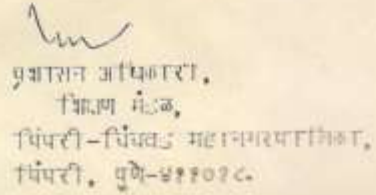 प्रशासन अधिकारी,
शिक्षण मंडळ,
पिंपरी-चिंचवड महानगरपालिका,
पिंपरी, पुणे-४११०१८.